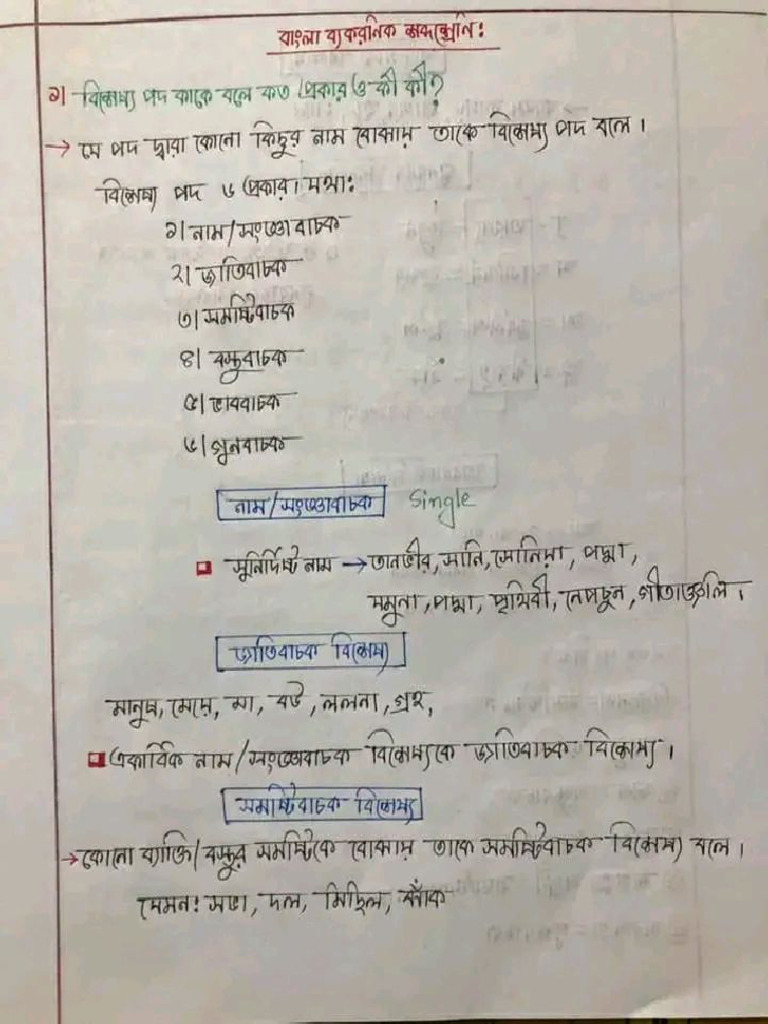 বাংলা ব্যকরনিক শব্দশ্রেনি:
১। বিশেষ্য পদ কাকে বলে কত প্রকার ও কী কী?
→ যে পদ দ্বারা কোনো কিছুর নাম বোঝায় তাকে বিশেষ্য পদ বলে।
বিশেষ্য পদ ৬ প্রকার। যথা:
১। নাম/সংজ্ঞাবাচক
২। জাতিবাচক
৩। সমষ্টিবাচক
৪। বস্তুবাচক
৫। ভাববাচক
৬। গুনবাচক
নাম/সংজ্ঞাবাচক Single
সুনির্দিষ্ট নাম → তানভীর, সানি, সোনিয়া, পদ্মা,
যমুনা, পদ্মা, পৃথিবী, নেপচুন, গীতাঞ্জলি।
জাতিবাচক বিশেষ্য
মানুষ, মেয়ে, মা, বউ, ললনা, গ্রহ,
একাধিক নাম/সংজ্ঞাবাচক বিশেষ্যকে জাতিবাচক বিশেষ্য।
সমষ্টিবাচক বিশেষ্য
→ কোনো ব্যাক্তি/বস্তুর সমষ্টিকে বোঝায় তাকে সমষ্টিবাচক বিশেষ্য বলে।
যেমন: সভা, দল, মিছিল, ঝাঁক